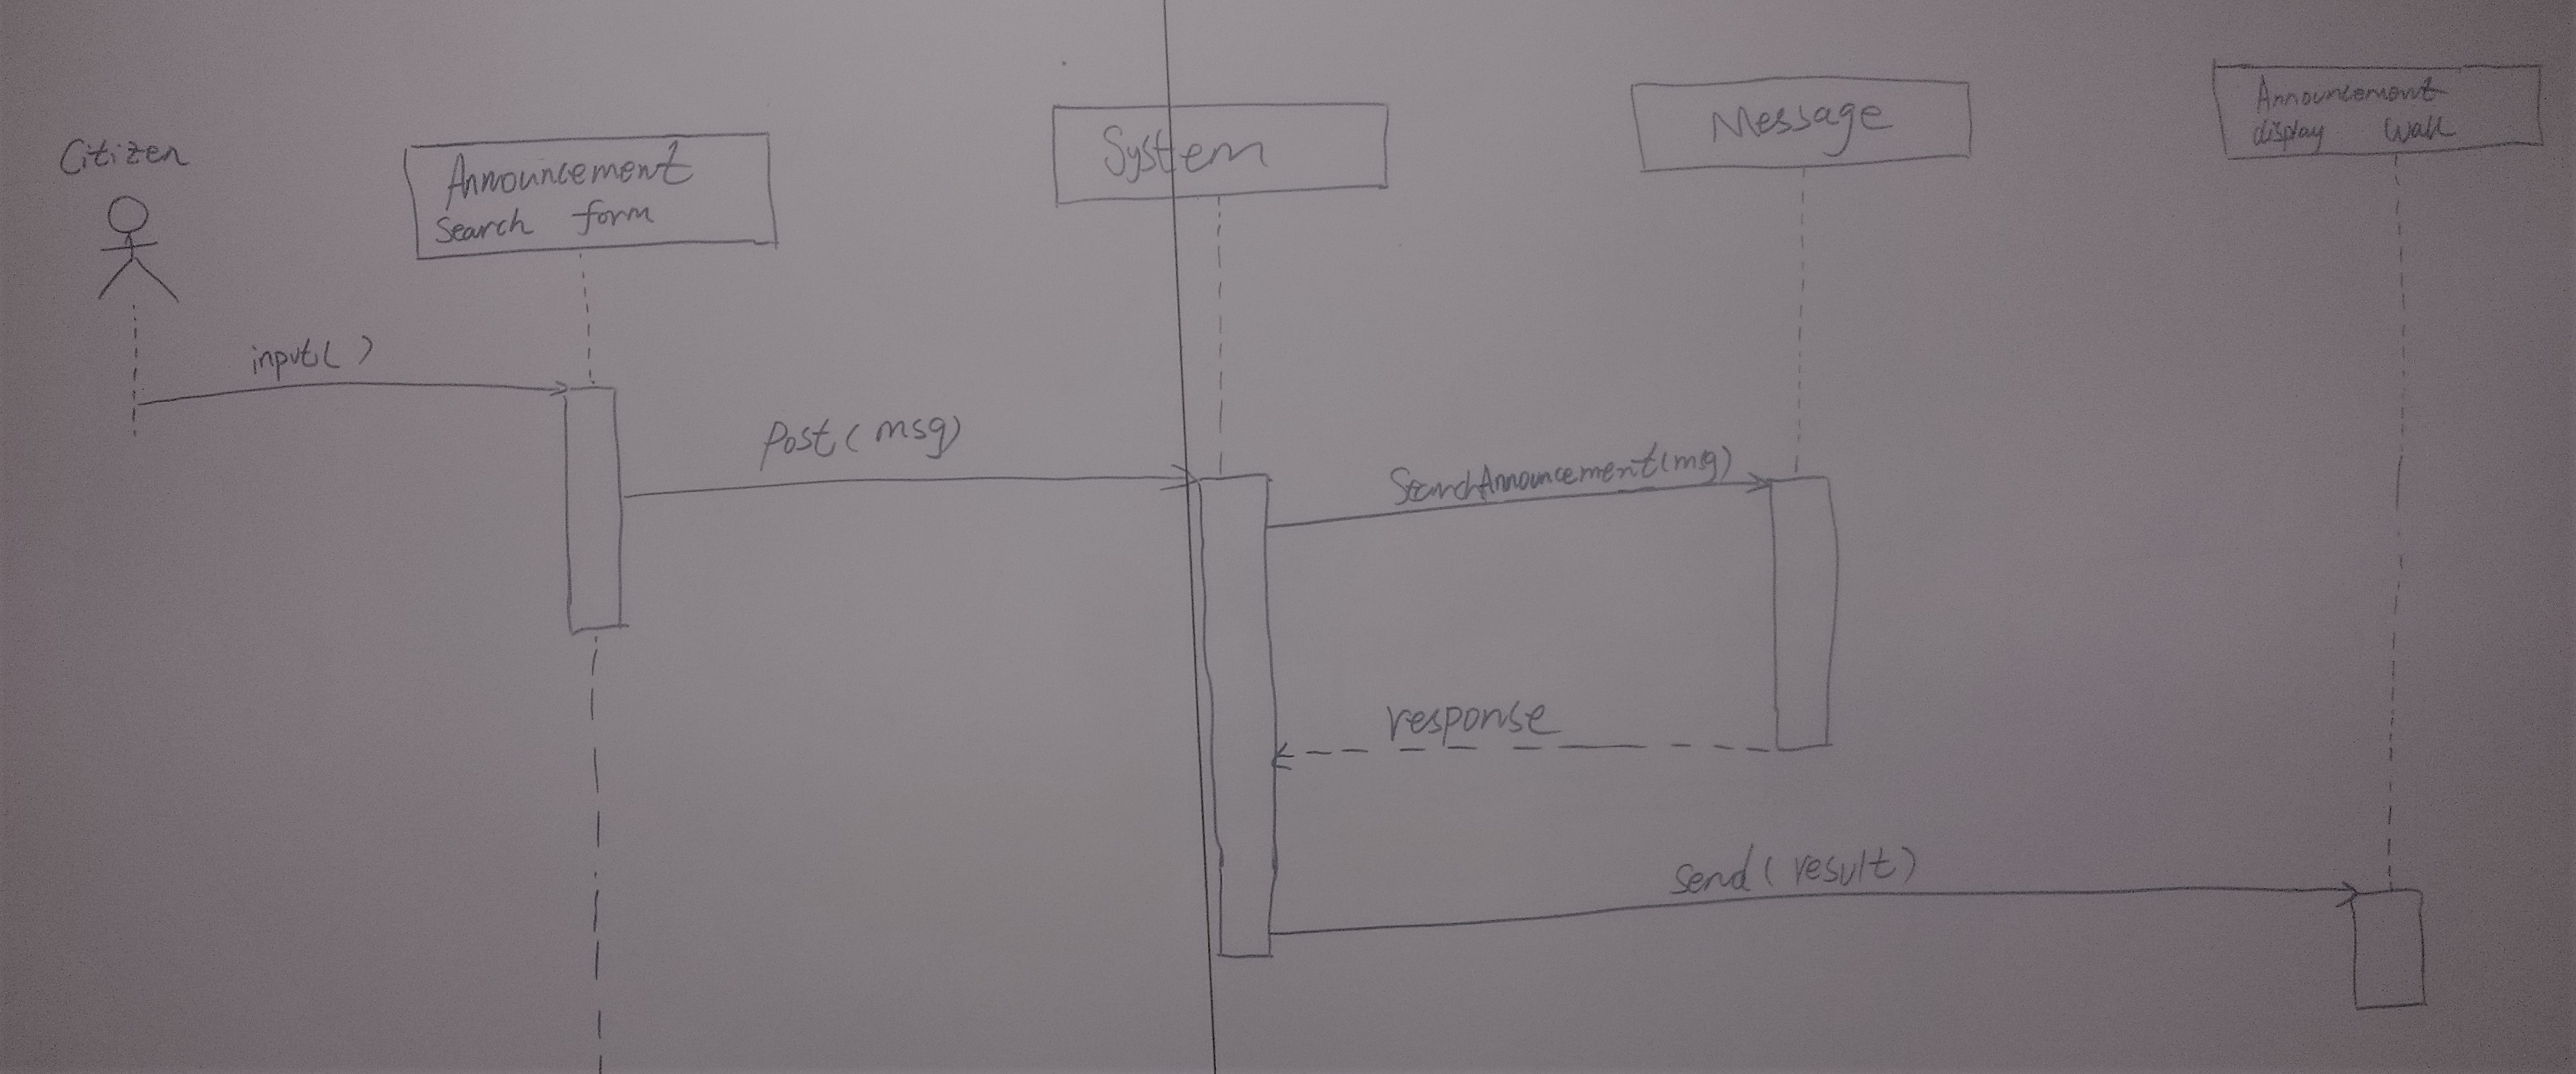 Citizen
Announcement
Search form
System
Message
Announcement
display Wall
input( )
Post(msg)
SearchAnnouncement(msg)
response
Send(result)